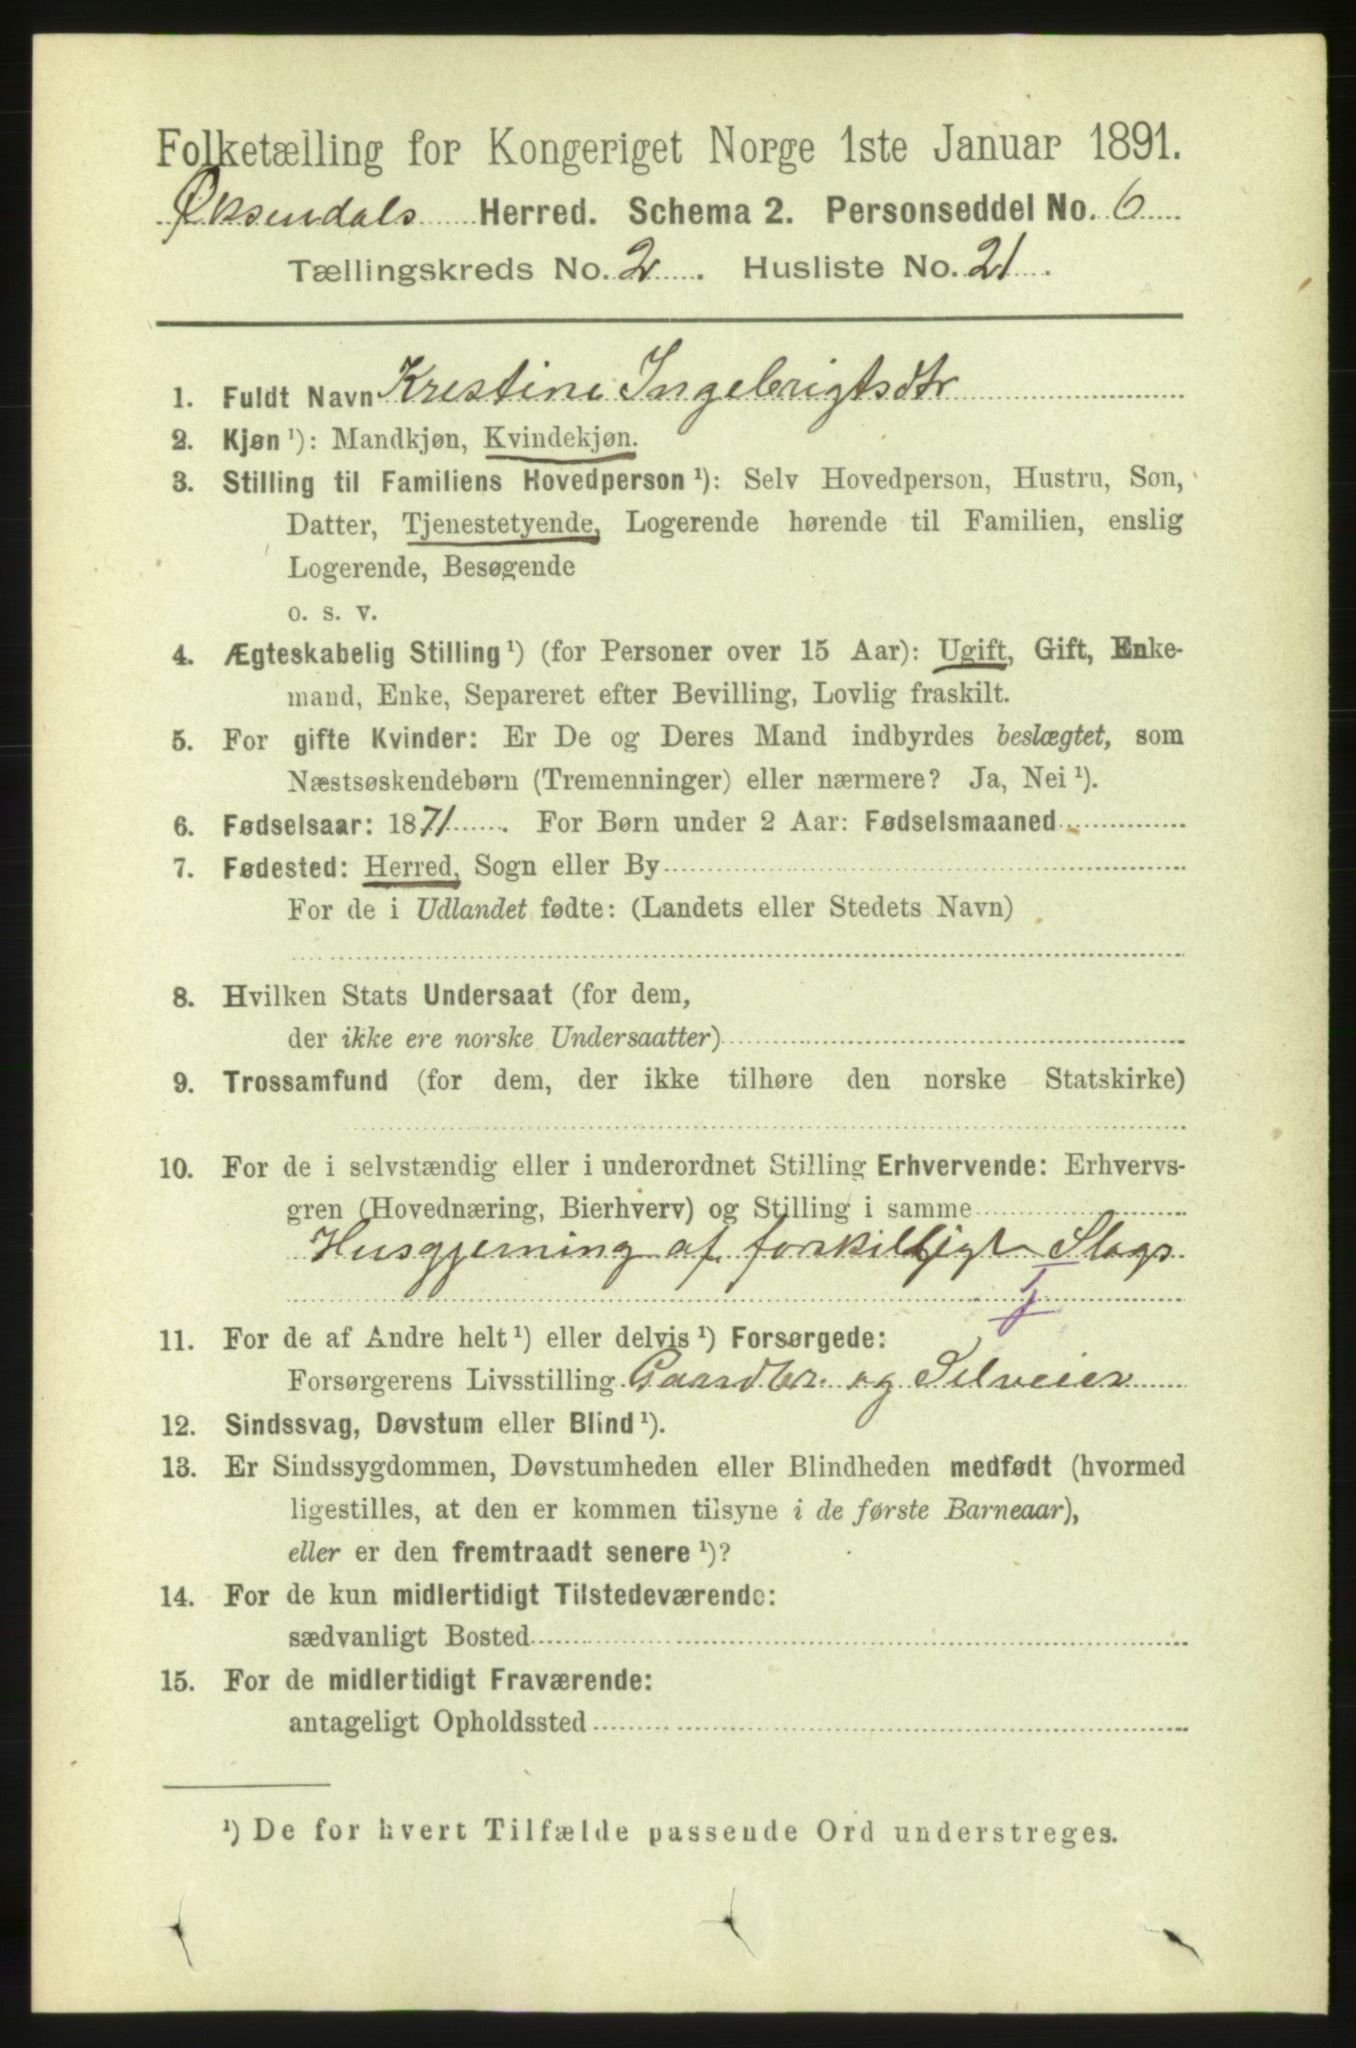 Folketælling for Kongeriget Norge 1ste Januar 1891.
Øksendals Herred. Schema 2. Personseddel No. 6
Tællingskreds No. 2. Husliste No. 21.
1. Fuldt Navn Krestine Ingebrigtsdtr
2. Kjøn ¹): Mandkjøn, Kvindekjøn.
3. Stilling til Familiens Hovedperson ¹): Selv Hovedperson, Hustru, Søn,
Datter, Tjenestetyende, Logerende hørende til Familien, enslig
Logerende, Besøgende
o. s. v.
4. Ægteskabelig Stilling ¹) (for Personer over 15 Aar): Ugift, Gift, Enke-
mand, Enke, Separeret efter Bevilling, Lovlig fraskilt.
5. For gifte Kvinder: Er De og Deres Mand indbyrdes beslægtet, som
Næstsøskendebørn (Tremenninger) eller nærmere? Ja, Nei ¹).
6. Fødselsaar: 1871. For Børn under 2 Aar: Fødselsmaaned
7. Fødested: Herred, Sogn eller By
For de i Udlandet fødte: (Landets eller Stedets Navn)
8. Hvilken Stats Undersaat (for dem,
der ikke ere norske Undersaatter)
9. Trossamfund (for dem, der ikke tilhøre den norske Statskirke)
10. For de i selvstændig eller i underordnet Stilling Erhvervende: Erhvervs-
gren (Hovednæring, Bierhverv) og Stilling i samme
Husgjerning af forskilligt Slags
11. For de af Andre helt ¹) eller delvis ¹) Forsørgede:
Forsørgerens Livsstilling Gaardbr. og Selveier
12. Sindssvag, Døvstum eller Blind ¹).
13. Er Sindssygdommen, Døvstumheden eller Blindheden medfødt (hvormed
ligestilles, at den er kommen tilsyne i de første Barneaar),
eller er den fremtraadt senere ¹)?
14. For de kun midlertidigt Tilstedeværende:
sædvanligt Bosted
15. For de midlertidigt Fraværende:
antageligt Opholdssted
¹) De for hvert Tilfælde passende Ord understreges.